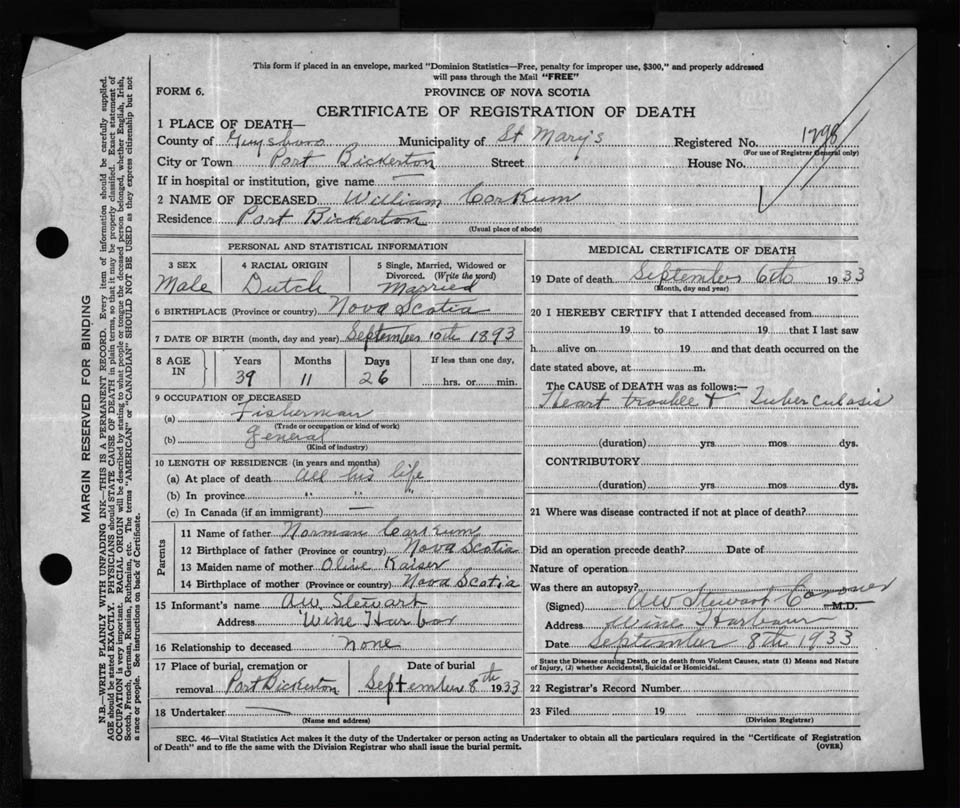 This form if placed in an envelope, marked "Dominion Statistics—Free, penalty for improper use, $300," and properly addressed
will pass through the Mail "FREE"
FORM 6. PROVINCE OF NOVA SCOTIA
CERTIFICATE OF REGISTRATION OF DEATH
1 PLACE OF DEATH—
County of Guysboro Municipality of St Mary's Registered No. 1798
(For use of Registrar General only)
City or Town Port Bickerton Street House No.
If in hospital or institution, give name —
2 NAME OF DECEASED William Corkum
Residence Port Bickerton
(Usual place of abode)
PERSONAL AND STATISTICAL INFORMATION
3 SEX 4 RACIAL ORIGIN 5 Single, Married, Widowed or
Divorced. (Write the word)
Male Dutch Married
6 BIRTHPLACE (Province or country) Nova Scotia
7 DATE OF BIRTH (month, day and year) September 10th 1893
8 AGE IN Years Months Days If less than one day,
39 11 26 hrs. or min.
9 OCCUPATION OF DECEASED
(a) Fisherman
(Trade or occupation or kind of work)
(b) General
(Kind of industry)
10 LENGTH OF RESIDENCE (in years and months)
(a) At place of death All his life
(b) In province " " "
(c) In Canada (if an immigrant) —
Parents
11 Name of father Norman Corkum
12 Birthplace of father (Province or country) Nova Scotia
13 Maiden name of mother Olive Kaiser
14 Birthplace of mother (Province or country) Nova Scotia
15 Informant's name AW Stewart
Address Wine Harbor
16 Relationship to deceased None
17 Place of burial, cremation or Date of burial
removal Port Bickerton September 8th 1933
18 Undertaker —
(Name and address)
MEDICAL CERTIFICATE OF DEATH
19 Date of death September 6th 1933
(Month, day and year)
20 I HEREBY CERTIFY that I attended deceased from
19 to 19 that I last saw
h alive on 19 and that death occurred on the
date stated above, at m.
The CAUSE of DEATH was as follows:—
Heart trouble & Tuberculosis
(duration) yrs. mos. dys.
CONTRIBUTORY
(duration) yrs. mos. dys.
21 Where was disease contracted if not at place of death?
Did an operation precede death? Date of
Nature of operation
Was there an autopsy?
(Signed) AW Stewart Coroner M.D.
Address Wine Harbour
Date September 8th 1933
State the Disease causing Death, or in death from Violent Causes, state (1) Means and Nature
of Injury, (2) whether Accidental, Suicidal or Homicidal.
22 Registrar's Record Number
23 Filed 19
(Division Registrar)
SEC. 46—Vital Statistics Act makes it the duty of the Undertaker or person acting as Undertaker to obtain all the particulars required in the "Certificate of Registration
of Death" and to file the same with the Division Registrar who shall issue the burial permit. (OVER)
MARGIN RESERVED FOR BINDING
N.B.—WRITE PLAINLY WITH UNFADING INK—THIS IS A PERMANENT RECORD. Every item of information should be carefully supplied.
AGE should be stated EXACTLY. PHYSICIANS should STATE CAUSE OF DEATH in plain terms, so that it may be properly classified. Exact statement of
OCCUPATION is very important. RACIAL ORIGIN will be described by stating to what people or tongue the deceased person belonged, whether English, Irish,
Scotch, French, German, Russian, Ruthenian, etc. The terms "AMERICAN" or "CANADIAN" SHOULD NOT BE USED as they express citizenship but not
a race or people. See instructions on back of Certificate.